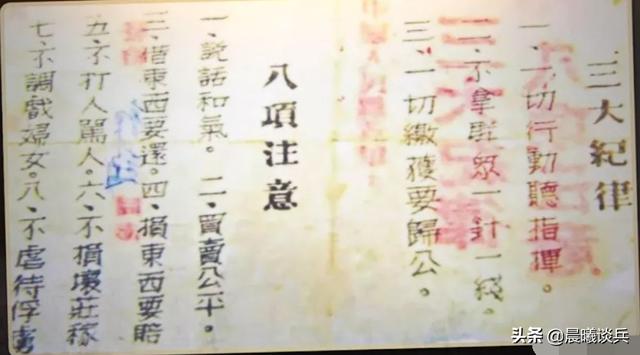 三大紀律
一、一切行動聽指揮。
二、不拿群眾一針一綫。
三、一切繳獲要歸公。
八項注意
一、説話和氣。二、買賣公平。
三、借東西要還。四、損東西要賠
五、不打人罵人。六、不損壞莊稼
七、不調戲婦女。八、不虐待俘虜
头条 @晨曦谈兵